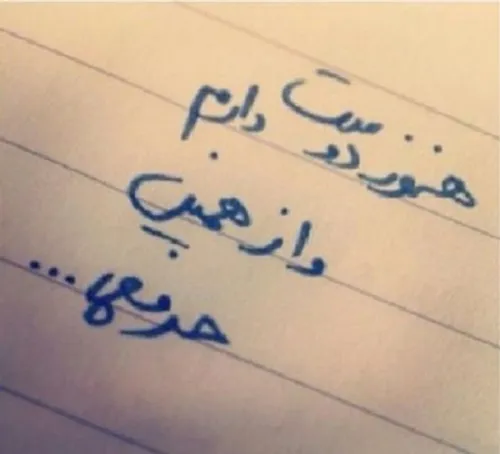 هنوز دوست دارم
و از همین
حرفها...